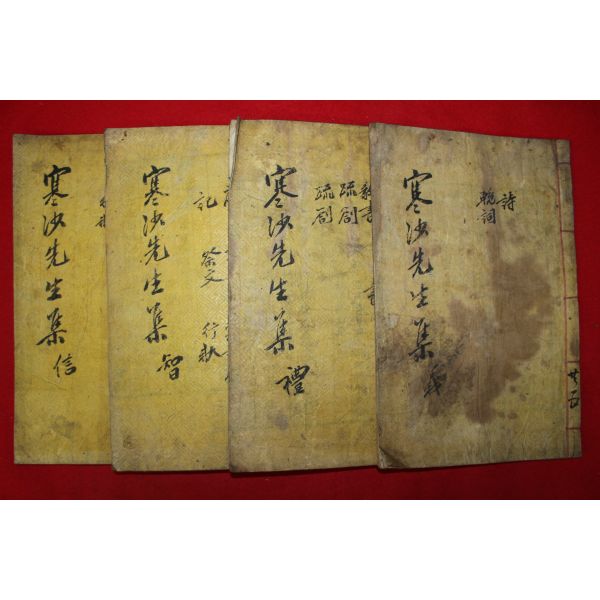 共五
詩
輓詞
寒沙先生集 義
疏劄
疏劄
寒沙先生集 禮
行狀
記 祭文
寒沙先生集 智
寒沙先生集 信